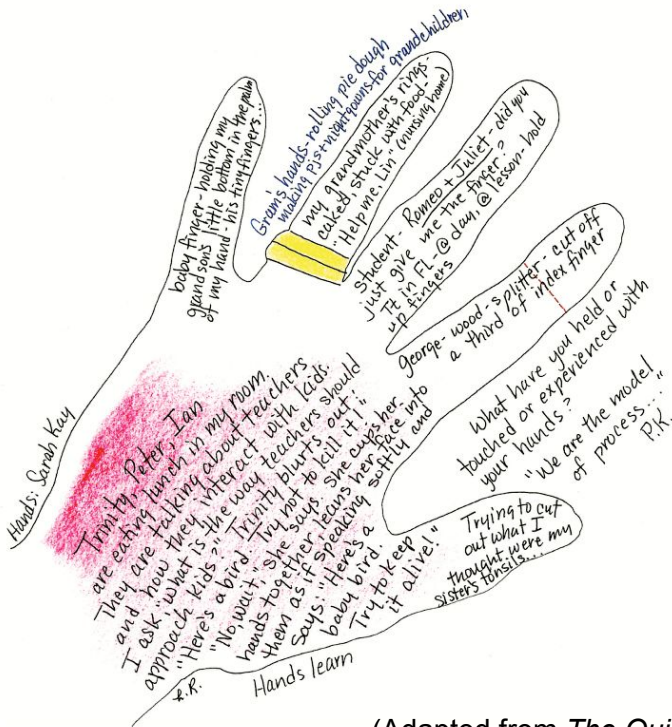 baby finger - holding my
grandson's little bottom in the palm
of my hand - his tiny fingers...
Gram's hands - rolling pie dough
making pjs + nightgowns for grandchildren,
my grandmother's rings -
caked, stuck with food -
"Help me, Lin" (nursing home)
Student - Romeo + Juliet - did you
just give me the finger?
It in FL - @ day, @ lesson - hold
up fingers
george - wood - splitter - cut off
a third of index finger
What have you held or
touched or experienced with
your hands?
"We are the model
of process..."
P.K.
Trying to cut
out what I
thought were my
sister's tonsils...
Hands: Sarah Kay
Trinity, Peter, Ian
are eating lunch in my room.
They are talking about teachers
and how they interact with kids.
I ask "What is the way teachers should
approach kids?" Trinity blurts out:
"Here's a bird. Try not to kill it!"
"No, wait," she says. She cups her
hands together, leans her face into
them as if speaking softly and
says: "Here's a
baby bird.
Try to keep
it alive!"
Hands learn
(Adapted from The Qui